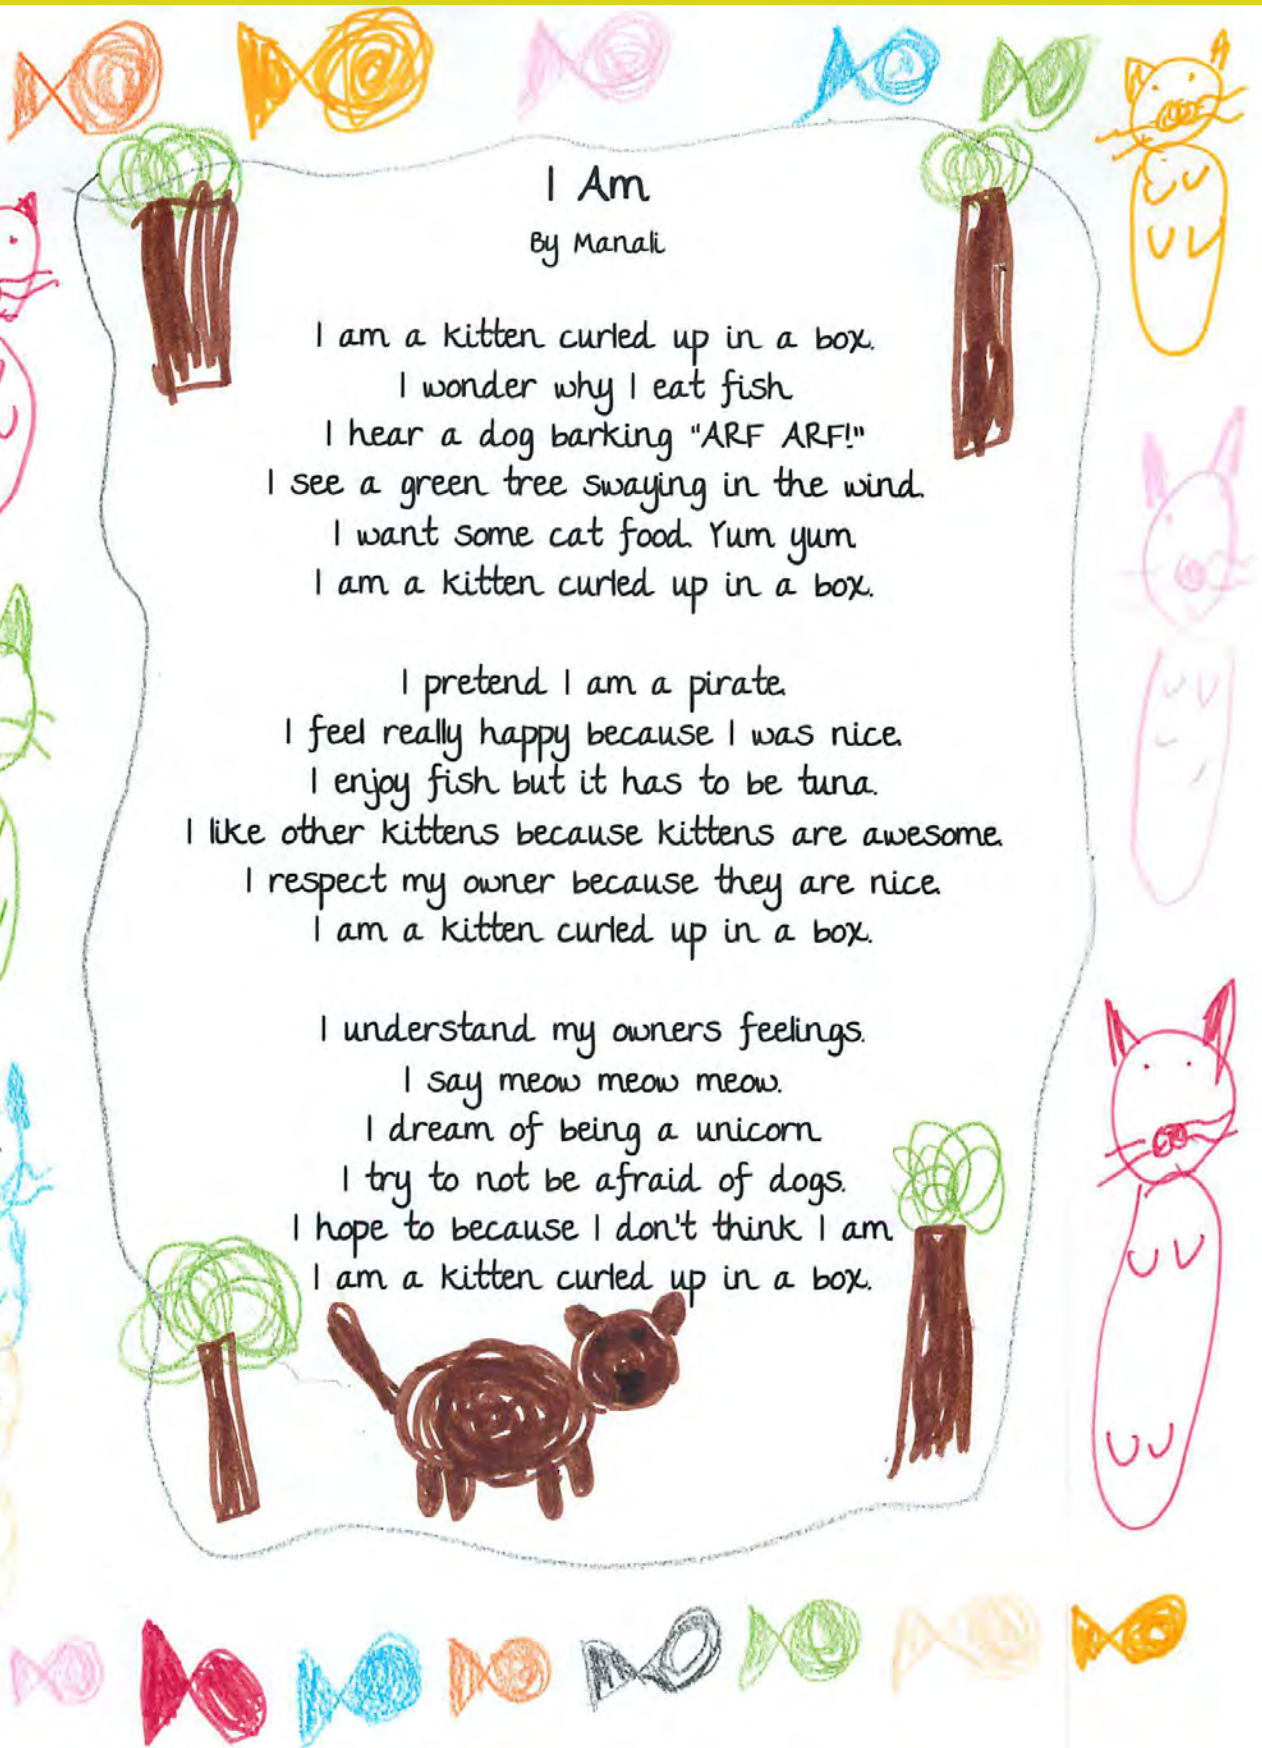 I Am
By Manali
I am a kitten curled up in a box.
I wonder why I eat fish
I hear a dog barking "ARF ARF!"
I see a green tree swaying in the wind.
I want some cat food. Yum yum
I am a kitten curled up in a box.
I pretend I am a pirate.
I feel really happy because I was nice.
I enjoy fish but it has to be tuna.
I like other kittens because kittens are awesome.
I respect my owner because they are nice.
I am a kitten curled up in a box.
I understand my owners feelings.
I say meow meow meow.
I dream of being a unicorn
I try to not be afraid of dogs.
I hope to because I don't think I am
I am a kitten curled up in a box.